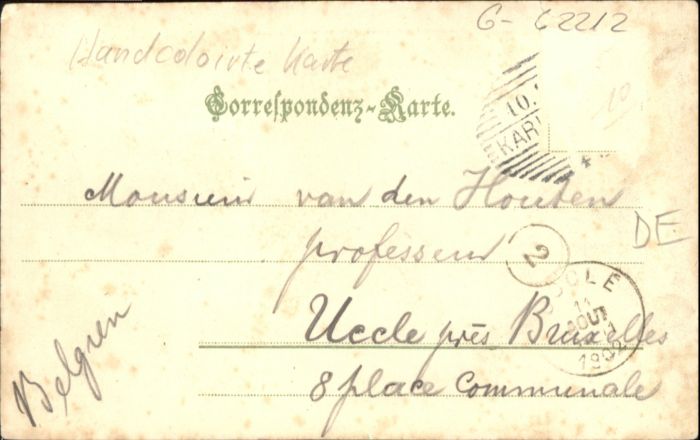 G-62212
Handcolorirte Karte
Correspondenz-Karte.
10.
KARL
10
Monsieur van den Houten
professeur
DE
2
Uccle près Bruxelles
8 place Communale
Belgien
UCCLE
11
AOUT
1902